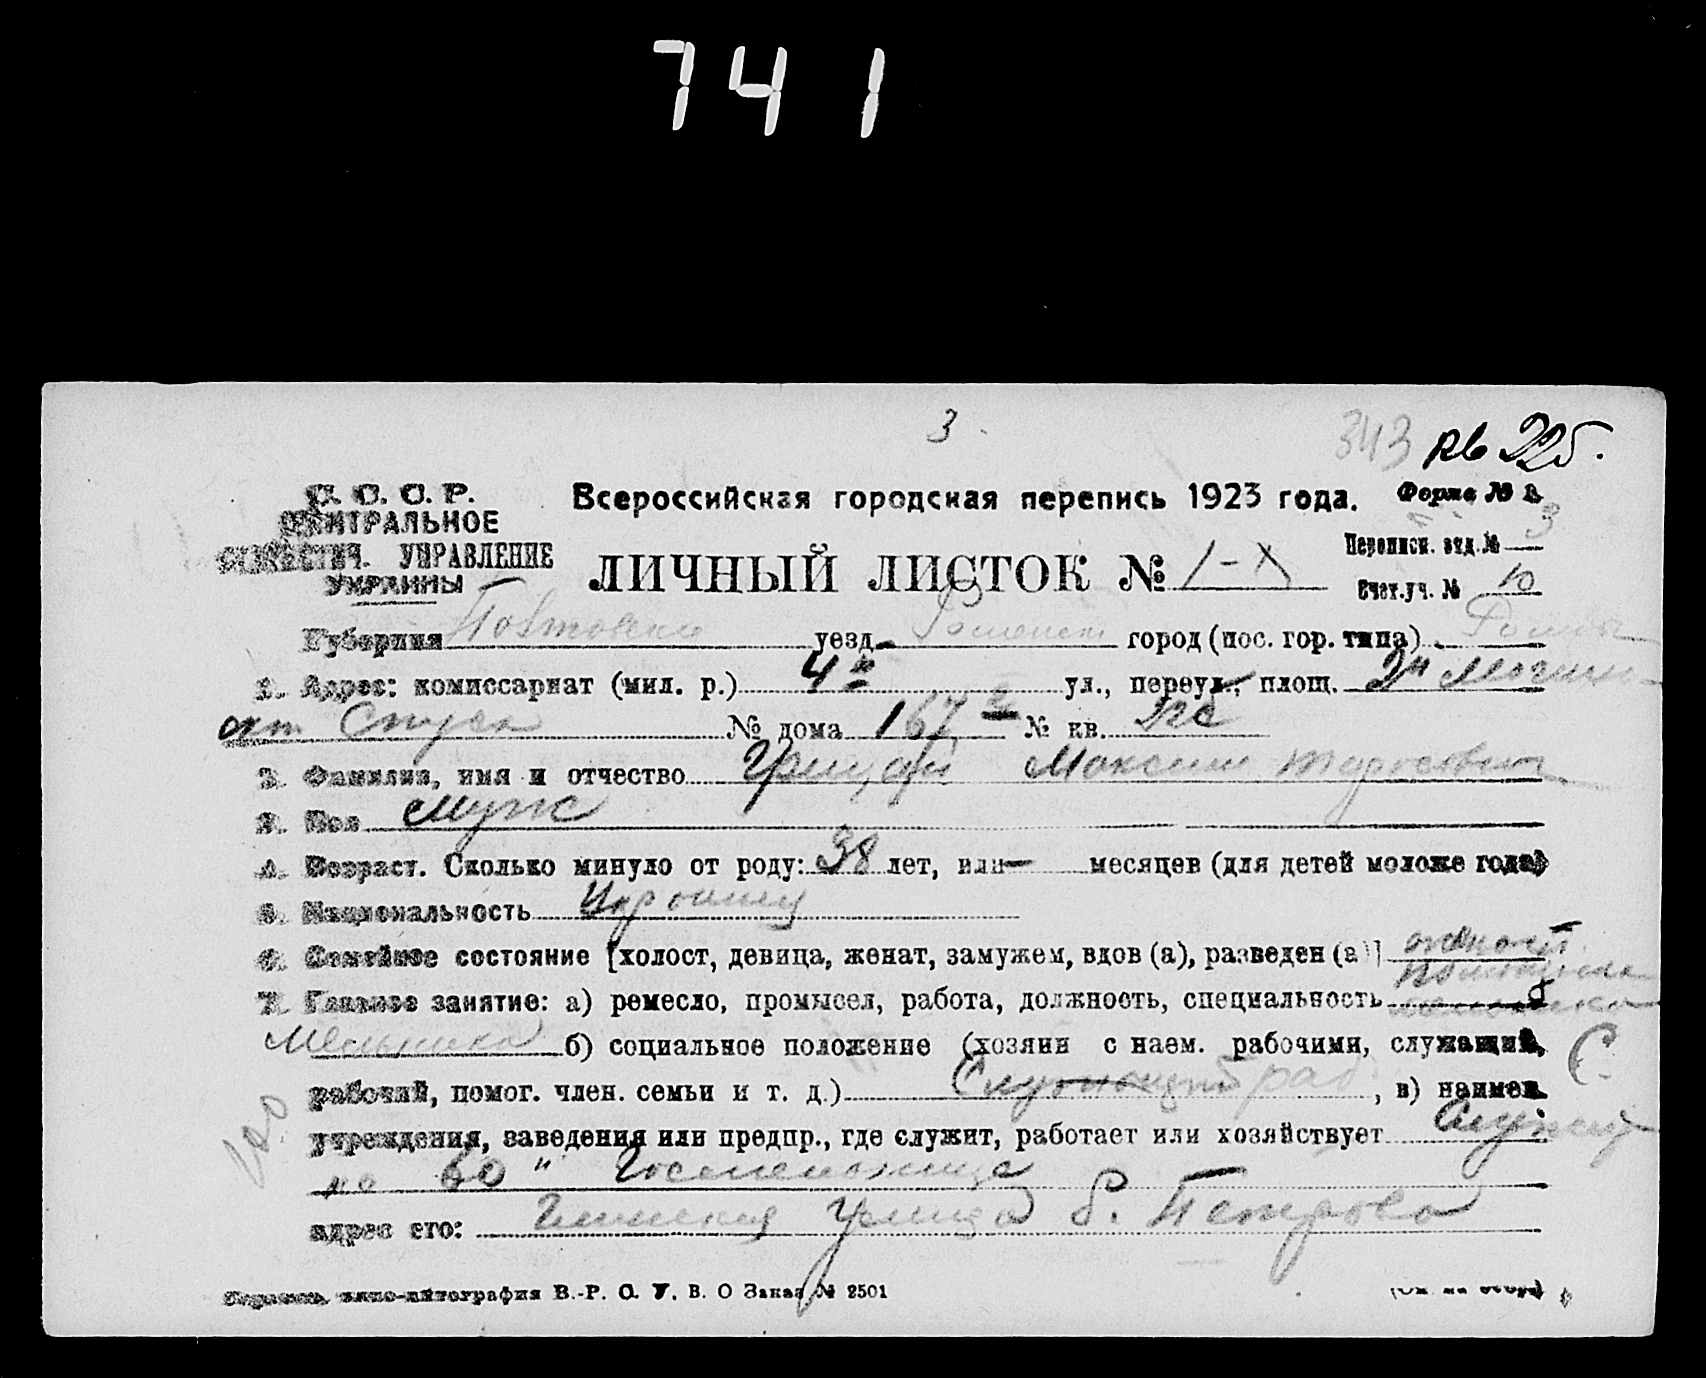 741
3
343 Rb 225.
С. С. С. Р. Всероссийская городская перепись 1923 года. Форма № 2
ЦЕНТРАЛЬНОЕ 3
СТАТИСТИЧ. УПРАВЛЕНИЕ ЛИЧНЫЙ ЛИСТОК № 1- Переписн. отд. №
УКРАИНЫ Счет. уч. № 10
Губерния уезд Роменск город (пос. гор. типа) Ромны
1. Адрес: комиссариат (мил. р.) 4й ул., переул., площ. 2й
Спуск № дома 167 № кв.
2. Фамилия, имя и отчество Грицай Максим Тарасович
3. Пол муж
4. Возраст. Сколько минуло от роду: 38 лет, или — месяцев (для детей моложе года)
5. Национальность Украинец
6. Семейное состояние [холост, девица, женат, замужем, вдов (а), разведен (а)]
7. Главное занятие: а) ремесло, промысел, работа, должность, специальность
Мельника б) социальное положение (хозяин с наем. рабочими, служащий,
рабочий, помог. член. семьи и т. д.) Служащий раб , в) наимен.
учреждения, заведения или предпр., где служит, работает или хозяйствует
Госмельница
адрес его: улица б. Петрова
типо-литография В.-Р. С. У. В. О Заказ № 2501 (См. на обор.)